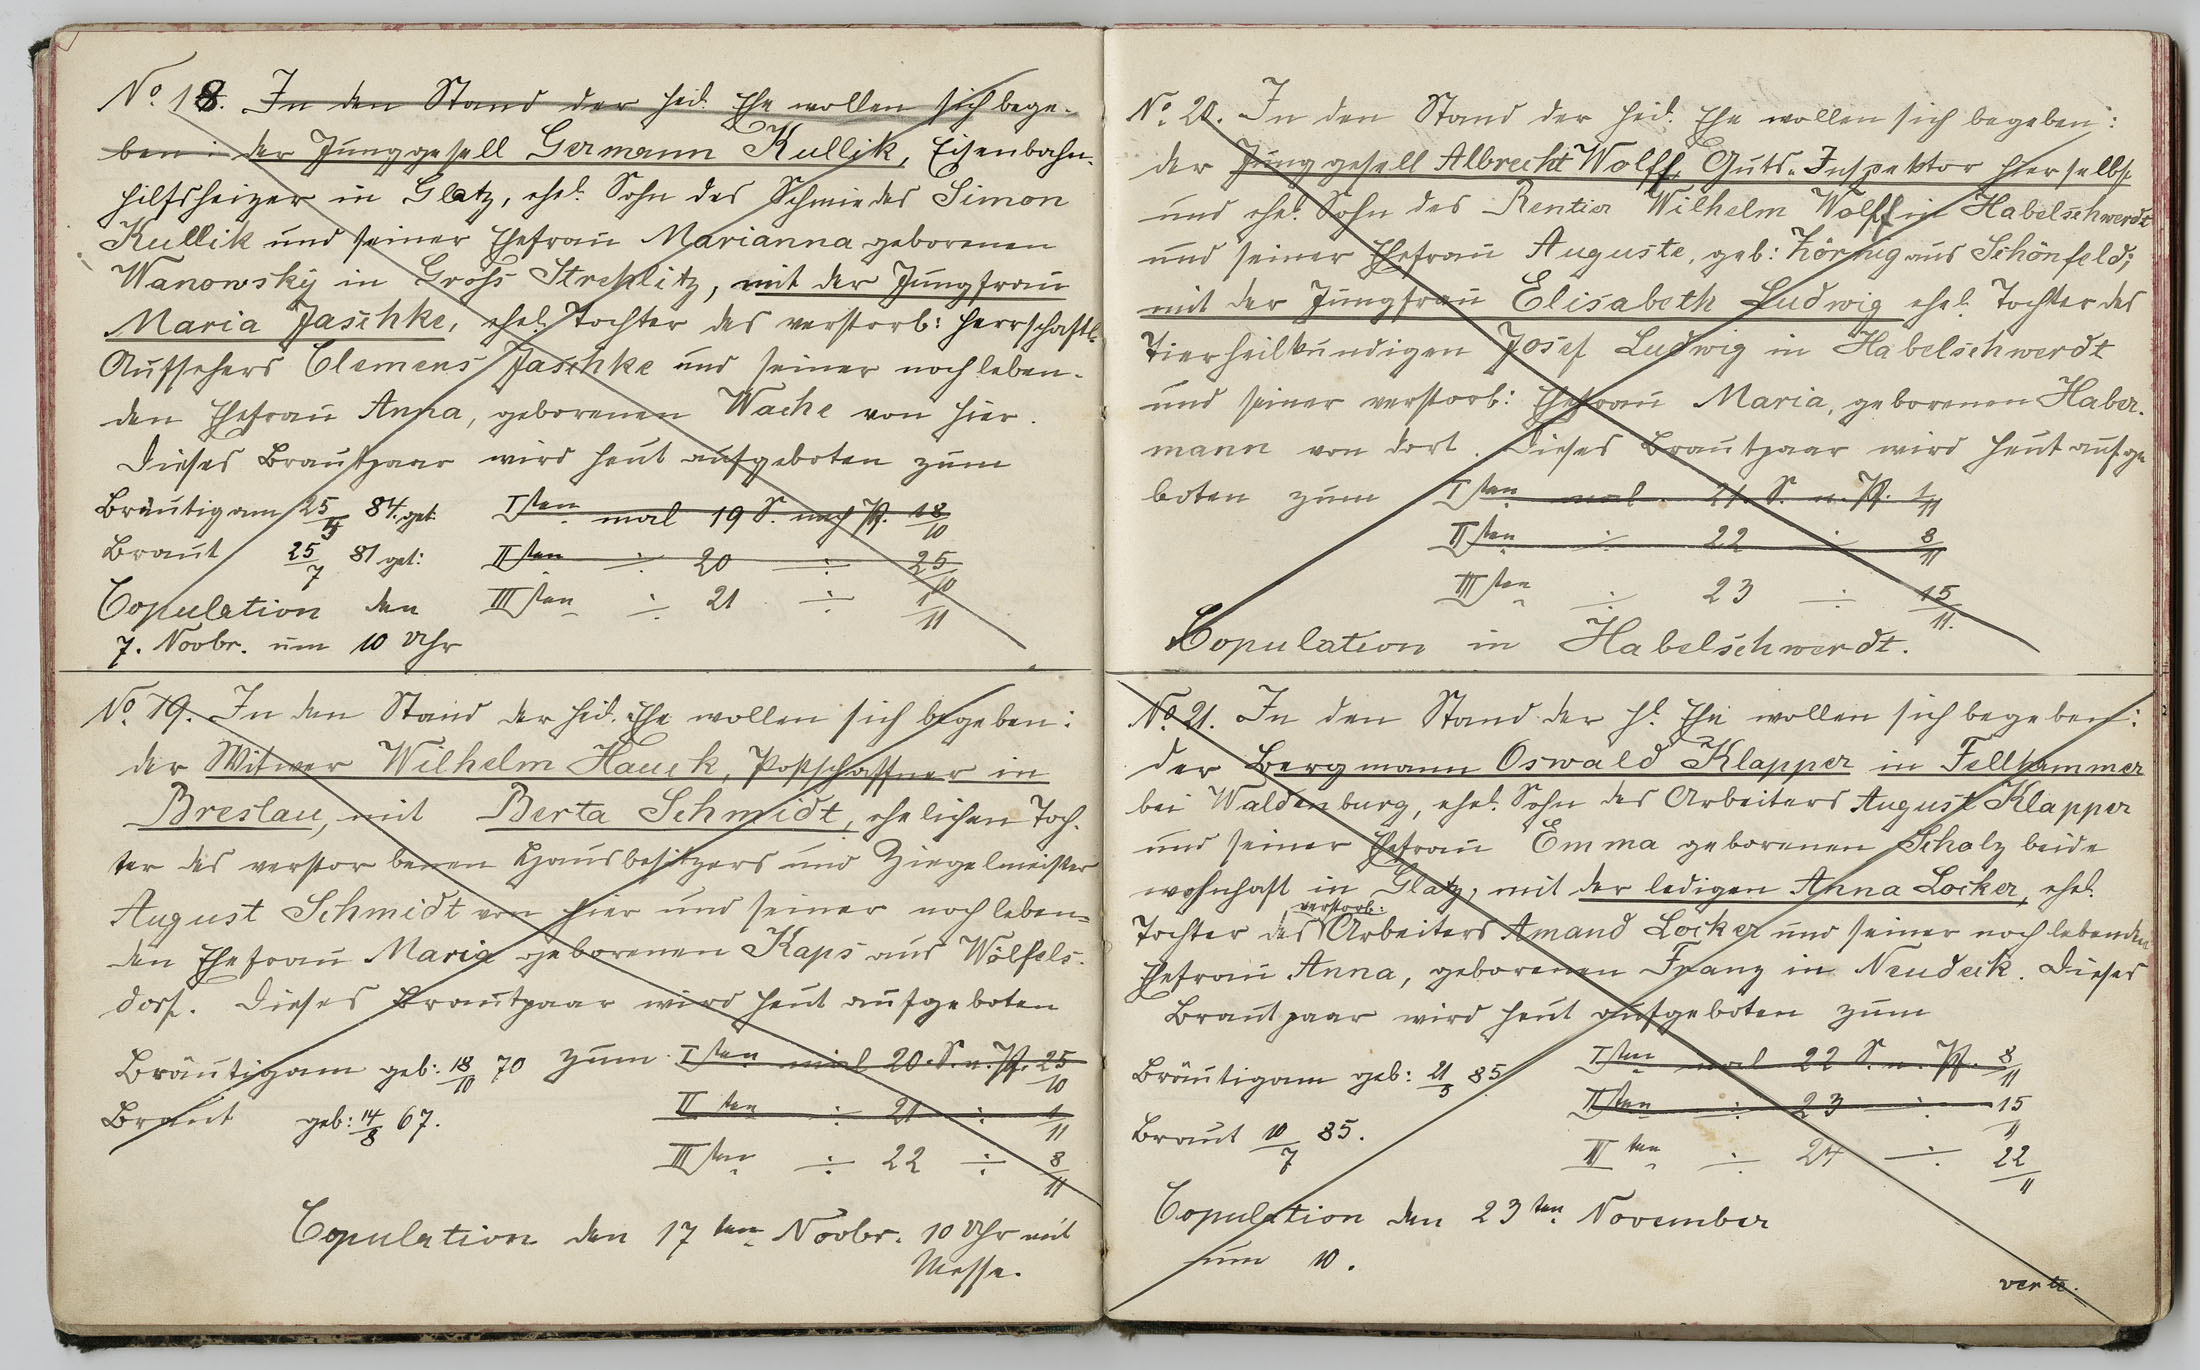 No. 18. In den Stand der heil. Ehe wollen sich bege-
ben: der Junggesell Germann Kullik, Eisenbahn-
hilfsheizer in Glatz, ehel. Sohn des Schmiedes Simon
Kullik und seiner Ehefrau Marianna geborenen
Wanowsky in Groß Strehlitz, mit der Jungfrau
Maria Jaschke, ehel. Tochter des verstorb: herrschaftl.
Aufsehers Clemens Jaschke und seiner noch leben-
den Ehefrau Anna, geborenen Wache von hier.
Dieses Brautpaar wird heut aufgeboten zum
Bräutigam 25/9 84. get. Isten mal 19 S. nach Pf. 18/10
Braut 25/7 81 get: IIten ÷ 20 ÷ 25/10
Copulation den IIIten ÷ 21 ÷ 1/11
7. Novbr. um 10 Uhr
No. 19. In den Stand der heil. Ehe wollen sich begeben:
der Witwer Wilhelm Hauck, Postschaffner in
Breslau, mit Berta Schmidt, ehelichen Toch-
ter des verstorbenen Hausbesitzers und Ziegelmeister
August Schmidt von hier und seiner noch leben-
den Ehefrau Maria geborenen Kaps aus Wölfels-
dorf. Dieses Brautpaar wird heut aufgeboten
Bräutigam geb: 18/10 70 zum Isten mal 20. S. n. Pf. 25/10
Braut geb: 14/8 67. IIten ÷ 21 ÷ 1/11
IIIten ÷ 22 ÷ 8/11
Copulation den 17ten Novbr. 10 Uhr mit
Messe.
No. 20. In den Stand der heil. Ehe wollen sich begeben:
der Junggesell Albrecht Wolff, Guts-Inspektor hierselbst
und ehel. Sohn des Rentier Wilhelm Wolff in Habelschwerdt
und seiner Ehefrau Auguste, geb: Hörnig aus Schönfeld;
mit der Jungfrau Elisabeth Ludwig ehel. Tochter des
Tierheilkundigen Josef Ludwig in Habelschwerdt
und seiner verstorb: Ehefrau Maria, geborenen Haber-
mann von dort. Dieses Brautpaar wird heut aufge
boten zum Isten mal 21. S. n. Pf. 1/11
IIten ÷ 22 ÷ 8/11
IIIten ÷ 23 ÷ 15/11.
Copulation in Habelschwerdt.
No. 21. In den Stand der hl. Ehe wollen sich begeben:
der Bergmann Oswald Klapper in Fellhammer
bei Waldenburg, ehel. Sohn des Arbeiters August Klapper
und seiner Ehefrau Emma geborenen Scholz beide
wohnhaft in Glatz, mit der ledigen Anna Locker, ehel.
verstorb:
Tochter des Arbeiters Amand Locker und seiner noch lebenden
Ehefrau Anna, geborenen Franz in Neudeck. Dieses
Brautpaar wird heut aufgeboten zum
Bräutigam geb: 21/5 85 Isten mal 22 S. n. Pf. 8/11
Braut 10/7 85. IIten ÷ 23 ÷ 15/11
IIten ÷ 24 ÷ 22/11
Copulation den 23ten November
um 10.
verte.